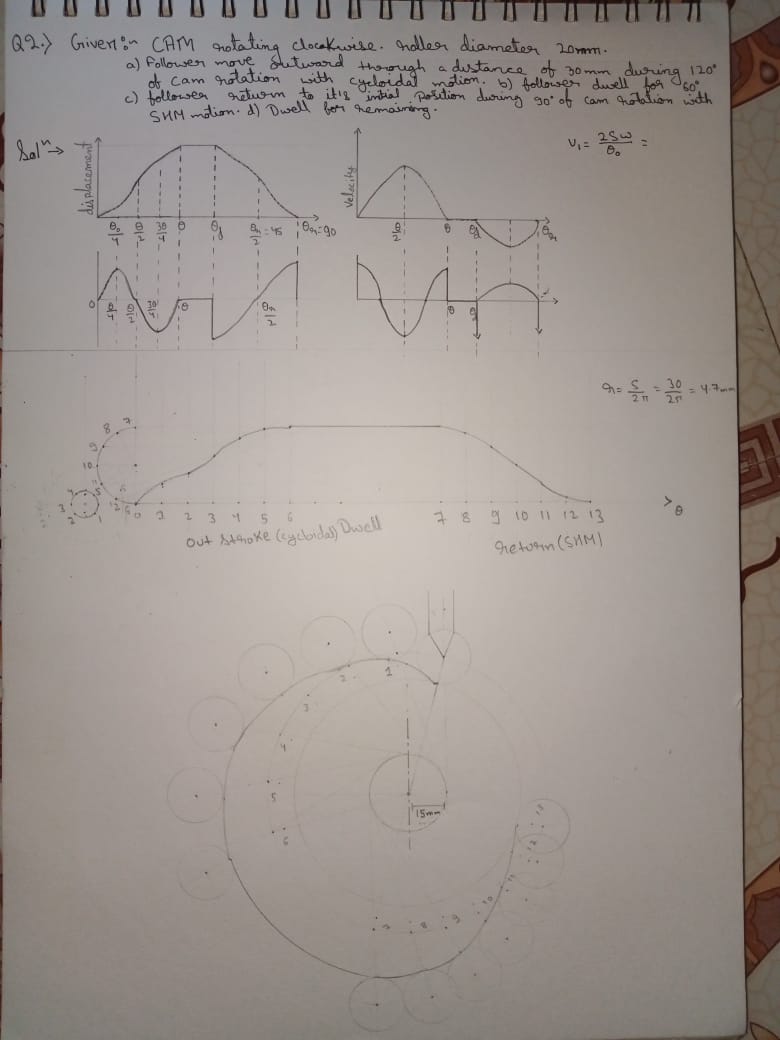 Q2.) Given:n CAM rotating clockwise. roller diameter 20mm.
a) Follower move outward through a distance of 30mm during 120°
of cam rotation with cycloidal motion. b) follower dwell for 60°
c) follower return to it's intial position during 90° of cam rotation with
SHM motion. d) Dwell for remaining.
Solⁿ→
displacement
θ₀/4 θ/2 3θ/4 θ θd θr/2=45 θr=90
velocity
θ/2 θ θd θr
V₁ = 2Sω/θ₀ =
0 θ/4 θ/2 3θ/4 θ θr/2
θ θ/2
r = S/2π = 30/2π = 4.7mm
8 7
9
10
3 2 1
0 1 2 3 4 5 6 7 8 9 10 11 12 13
>θ
out stroke (cycloidal) Dwell
return (SHM)
1
2
3
4
5
6
15mm
7 8 9 10 11 12 13